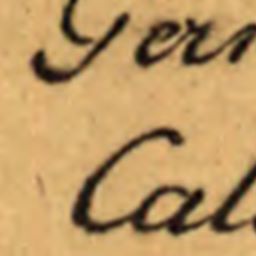 Gern
Cal